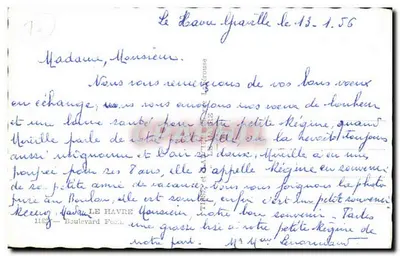 Le Havre Graville le 13-1.56
Madame, Monsieur.
Nous vous remercions de vos bons voeux
en échange, nous vous envoyons nos voeux de bonheur
et une bonne santé pour votre petite Régine, quand
Mireille parle de votre petite fille, on la revoit toujours
aussi mignonne et l'air si doux, Mireille a eu une
poupée pour ses 7 ans, elle l'appelle Régine en souvenir
de sa petite amie de vacances, nous vous joignons la photo
prise au Boulou, elle est sombre enfin c'est un petit souvenir
Recevez Madame Monsieur, notre bon souvenir. Faites
LE HAVRE
Boulevard
une grosse bise à votre petite Régine de
notre part. Mr Mme